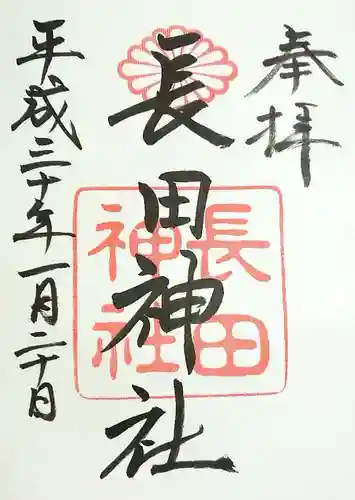 奉拝
長田神社
長田神社
平成三十年一月二十日